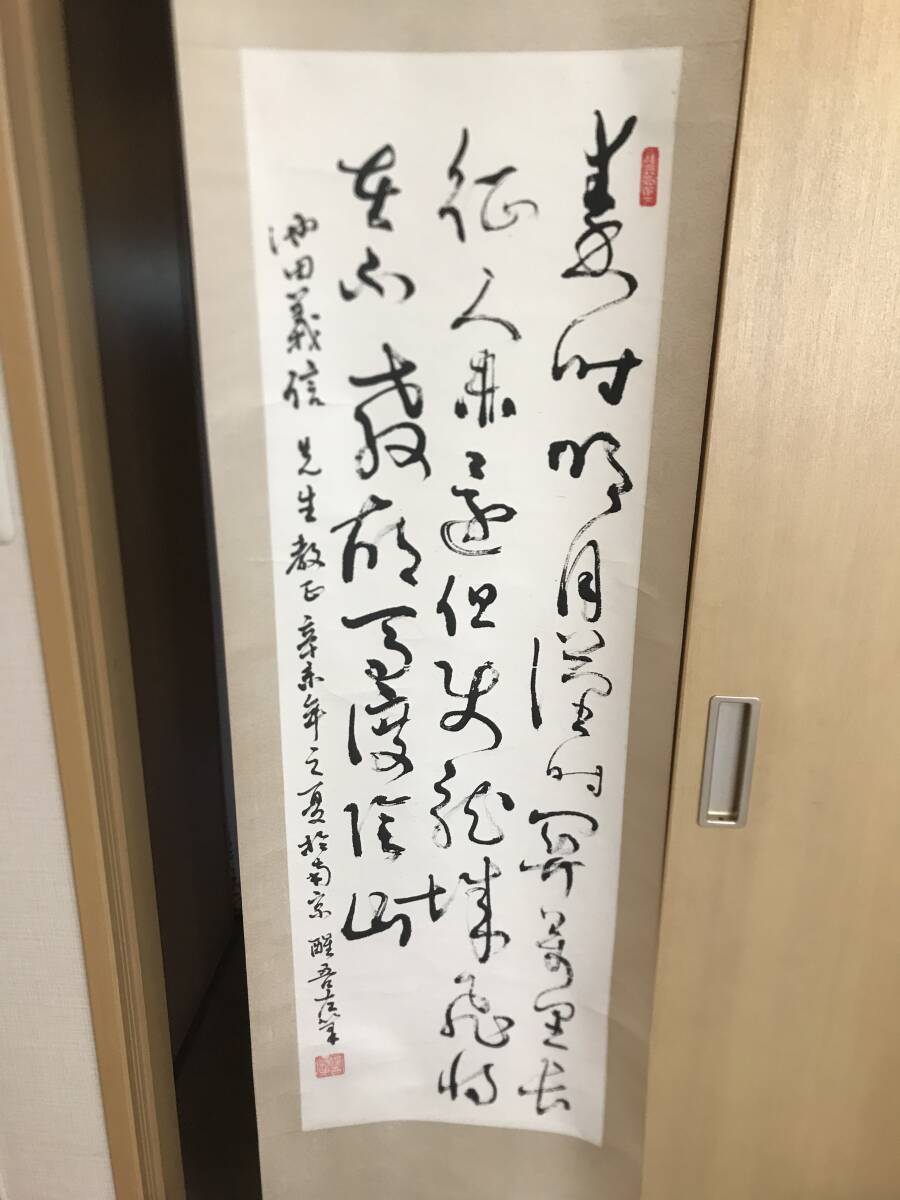 秦时明月漢时関萬里长
征人未還但使龙城飛将
在不教胡馬度陰山
池田義信 先生教正 辛未年之夏於南京 醒吾左筆